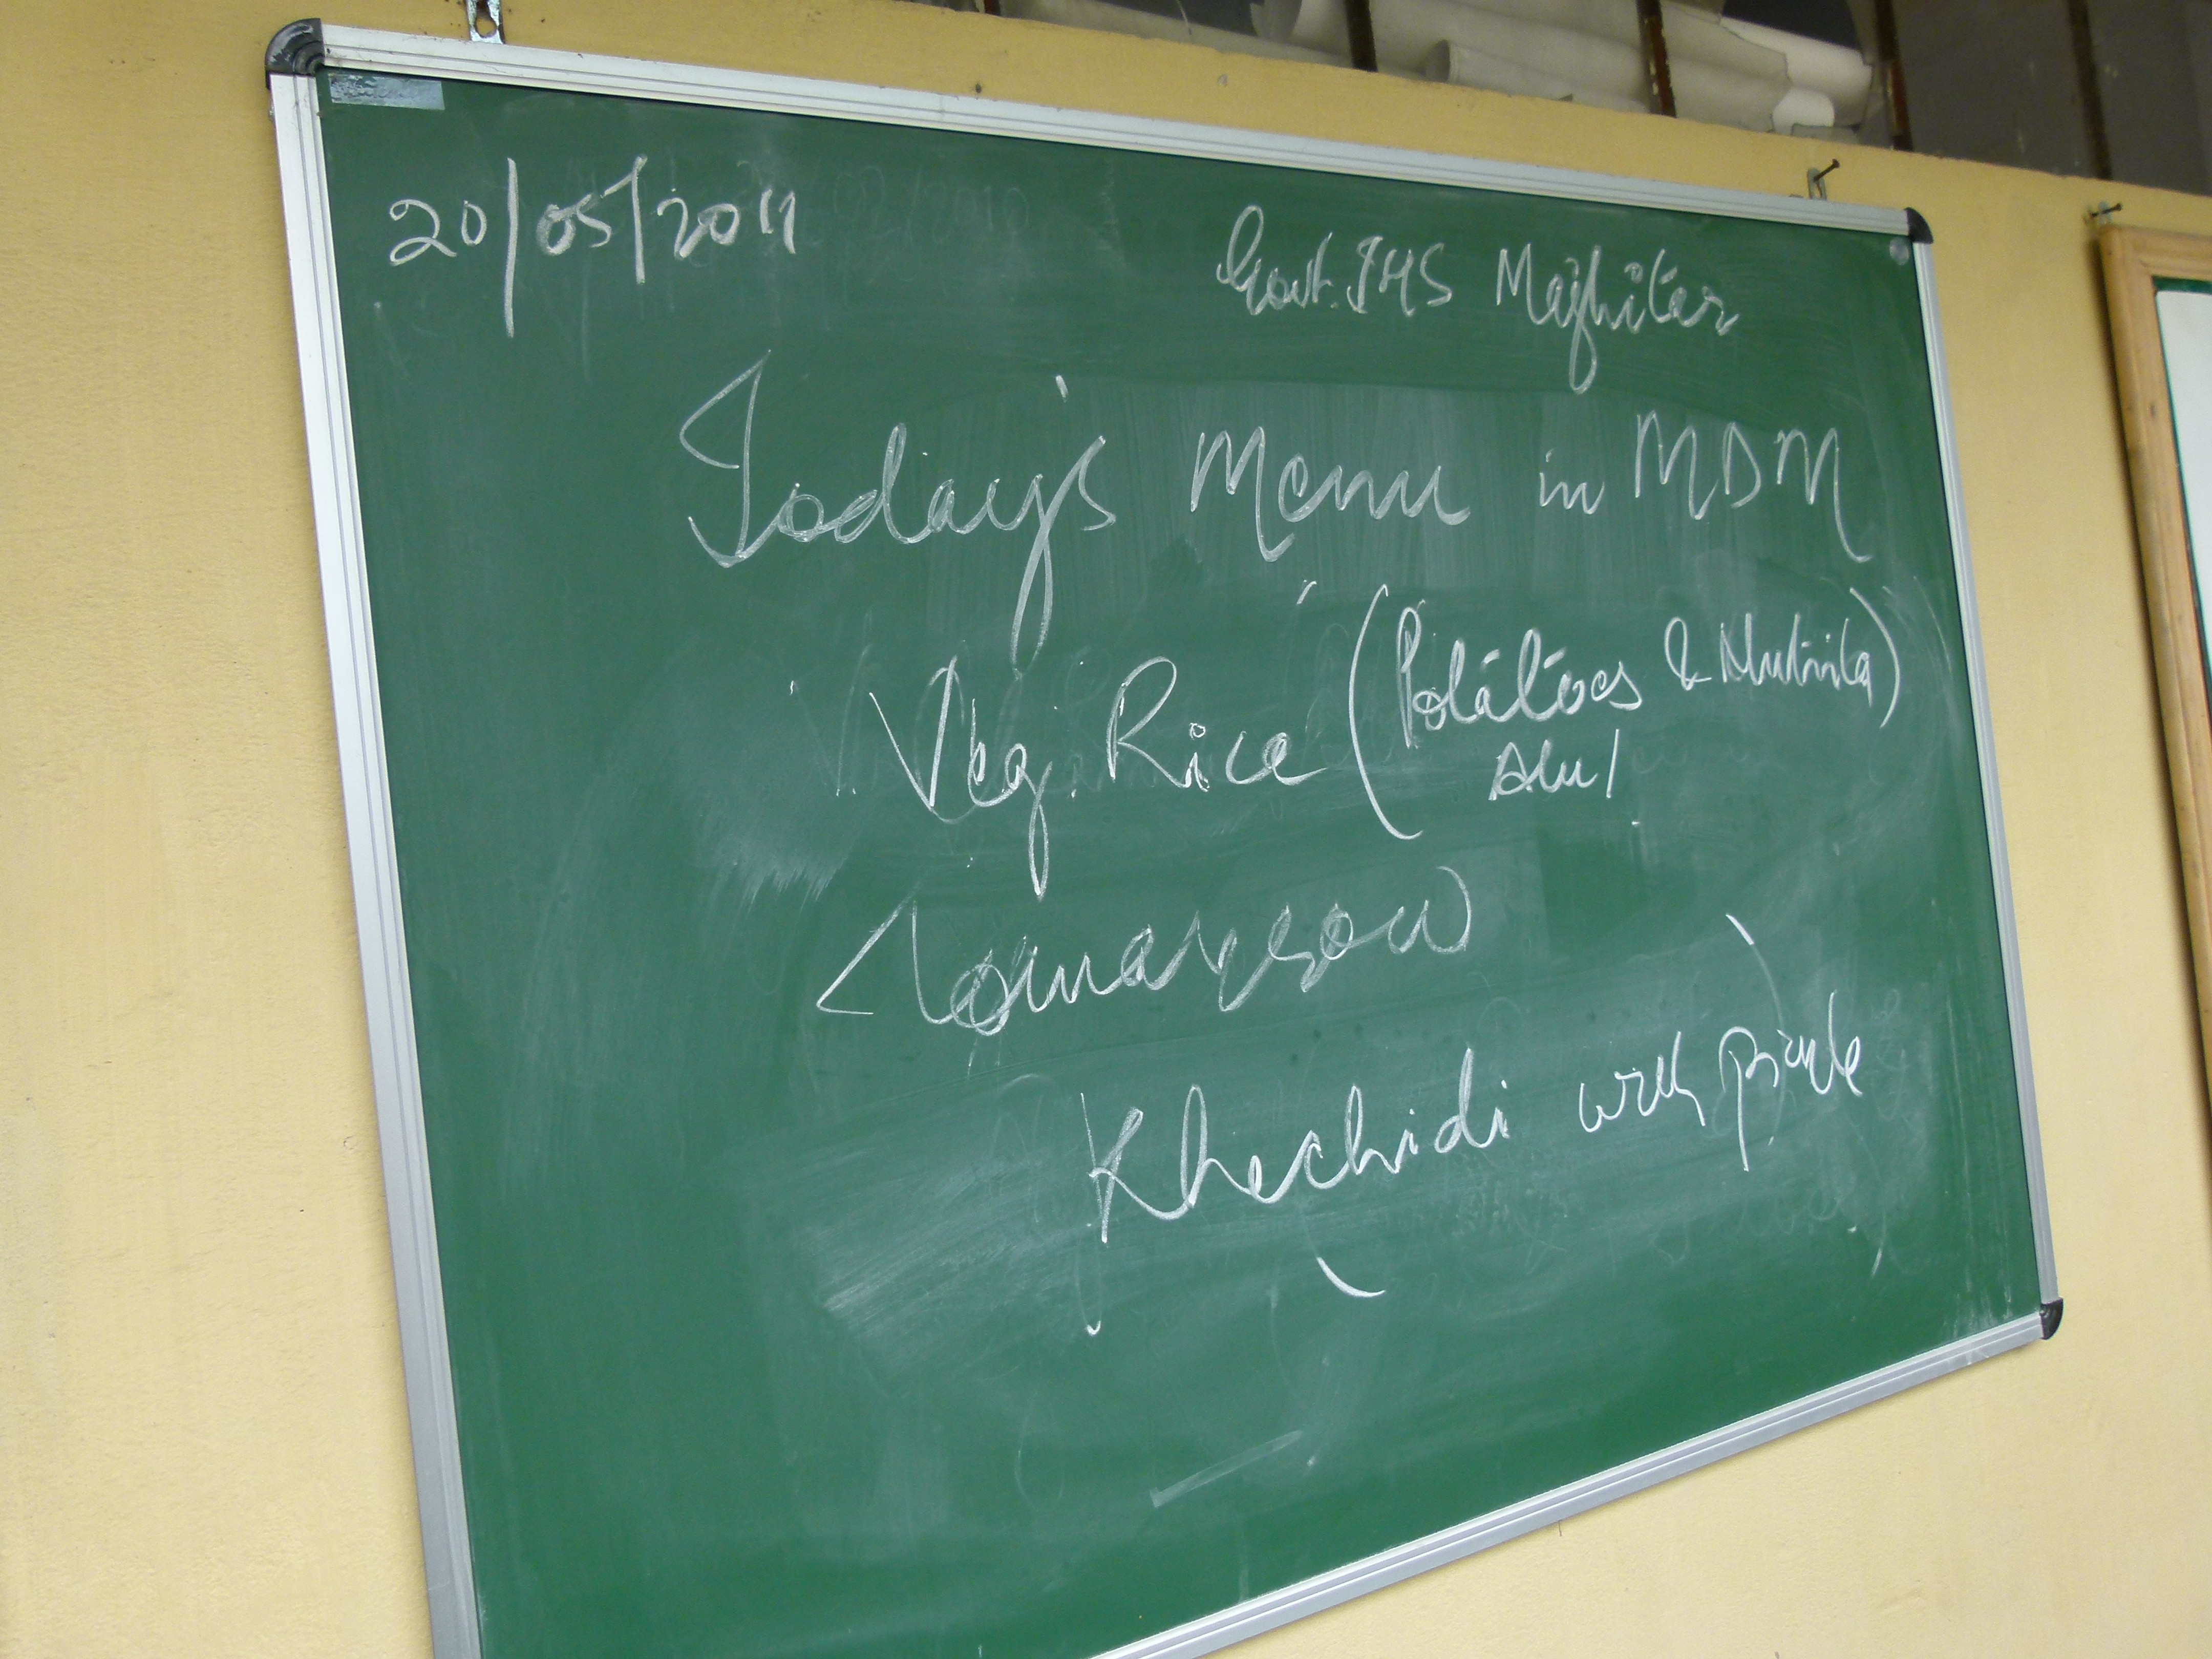 20/05/2011
Govt. JHS Majhitar
Today's Menu in MDM
Veg. Rice (Potatoes & Nutrila)
Alu/
Tomorrow
Khechidi with pickle